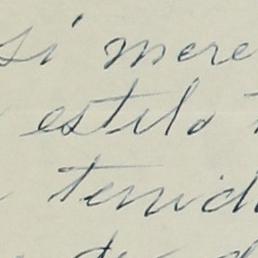 si mere
estilo
tenid